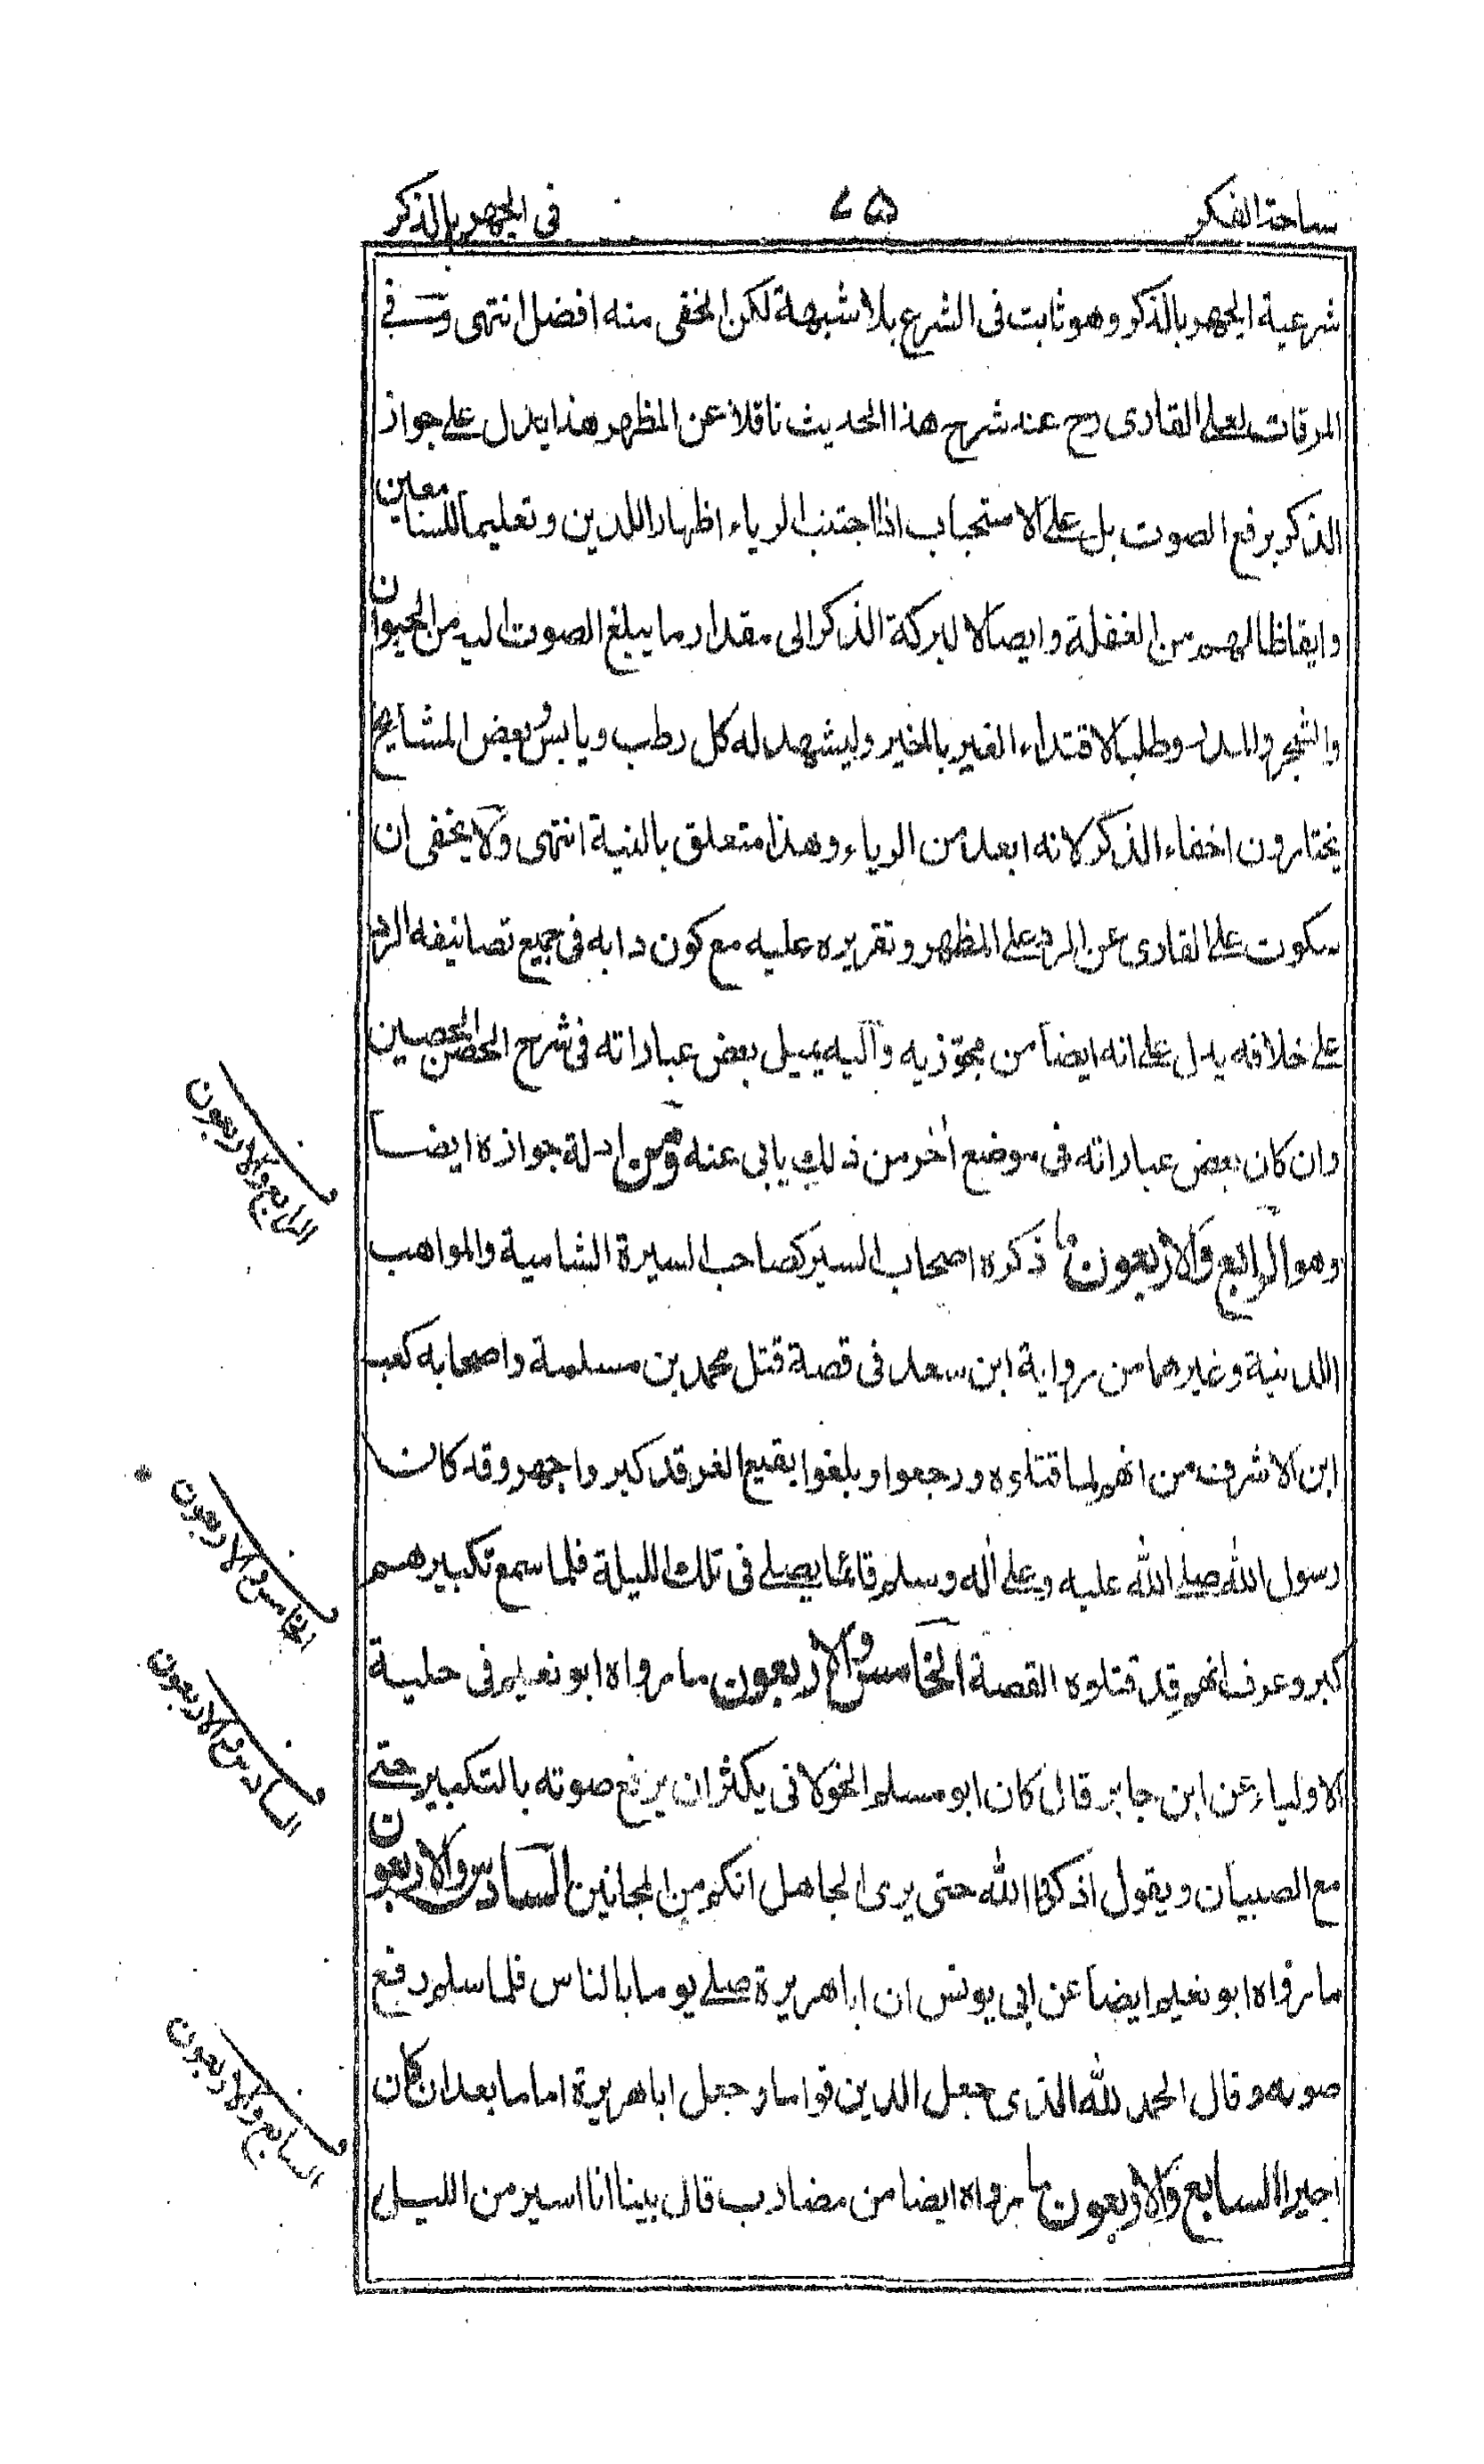 ساحة الفكر
٤٥
فى الجهر بالذكر
شرعية الجهر بالذكر وهو ثابت فى الشرع بلا شبهة لكن الخفى منه افضل انتهى وفى
المرقات لعلى القارى رح عند شرح هذا الحديث ناقلا عن المظهر هذا يدل على جواز
الذكر برفع الصوت بل على الاستحباب اذا اجتنب الرياء اظهارا للدين وتعليما للسامعين
وايقاظا لهم من الغفلة وايصالا لبركة الذكر الى مقدار ما يبلغ الصوت اليه من الحيوان
والشجر والمدر وطلبا لاقتداء الغير بالخير وليشهد له كل رطب ويابس وبعض المشايخ
يختارون اخفاء الذكر لانه ابعد من الرياء وهذا متعلق بالنية انتهى ولا يخفى ان
سكوت على القارى عن الرد على المظهر وتقريره عليه مع كون دابه فى جميع تصانيفه الرد
على خلافه يدل على انه ايضا من مجوّزيه واليه يميل بعض عباراته فى شرح الحصن الحصين
وان كان بعض عباراته فى موضع اٰخر من ذلك يابى عنه ومن ادلة جوازه ايضا
وهو الرابع والاربعون ما ذكره اصحاب السير كصاحب السيرة الشامية والمواهب
اللدنية وغيرهما من رواية ابن سعد فى قصة قتل محمد بن مسلمة واصحابه كعب
ابن الاشرف من انهم لما قتلوه ورجعوا وبلغوا بقيع الغرقد كبر واجهر وقد كان
رسول الله صلى الله عليه وعلى اٰله وسلم قائما يصلى فى تلك الليلة فلما سمع تكبيرهم
كبر وعرف انهم قد قتلوه القصة الخامس والاربعون ما رواه ابو نعيم فى حلية
الاولياء عن ابن جابر قال كان ابو مسلم الخولانى يكثر ان يرفع صوته بالتكبير حتى
مع الصبيان ويقول اذكروا الله حتى يرى الجاهل انكم من المجانين السادس والاربعون
ما رواه ابو نعيم ايضا عن ابى يونس ان ابا هريرة صلى يوما بالناس فلما سلم رفع
صوته وقال الحمد لله الذى جعل الدين قواما وجعل ابا هريرة اماما بعد ان كان
اجيرا السابع والاربعون ما رواه ايضا من مضارب قال بينا انا اسير من الليل
الرابع والاربعون
الخامس والاربعون
السادس والاربعون
السابع والاربعون